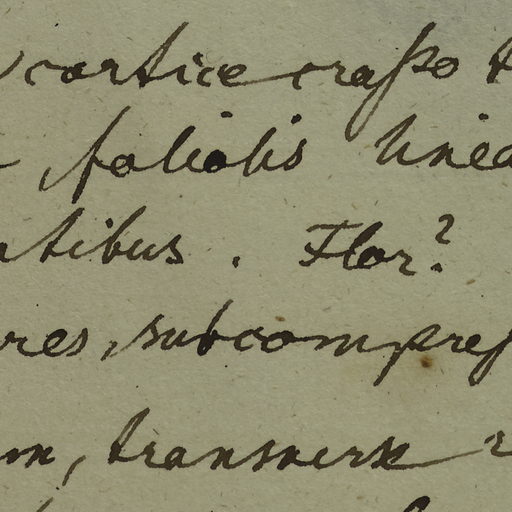 cortice craſso t
, foliolis linea
ntibus. Flor?
res, subcompreſ
m, transvers r